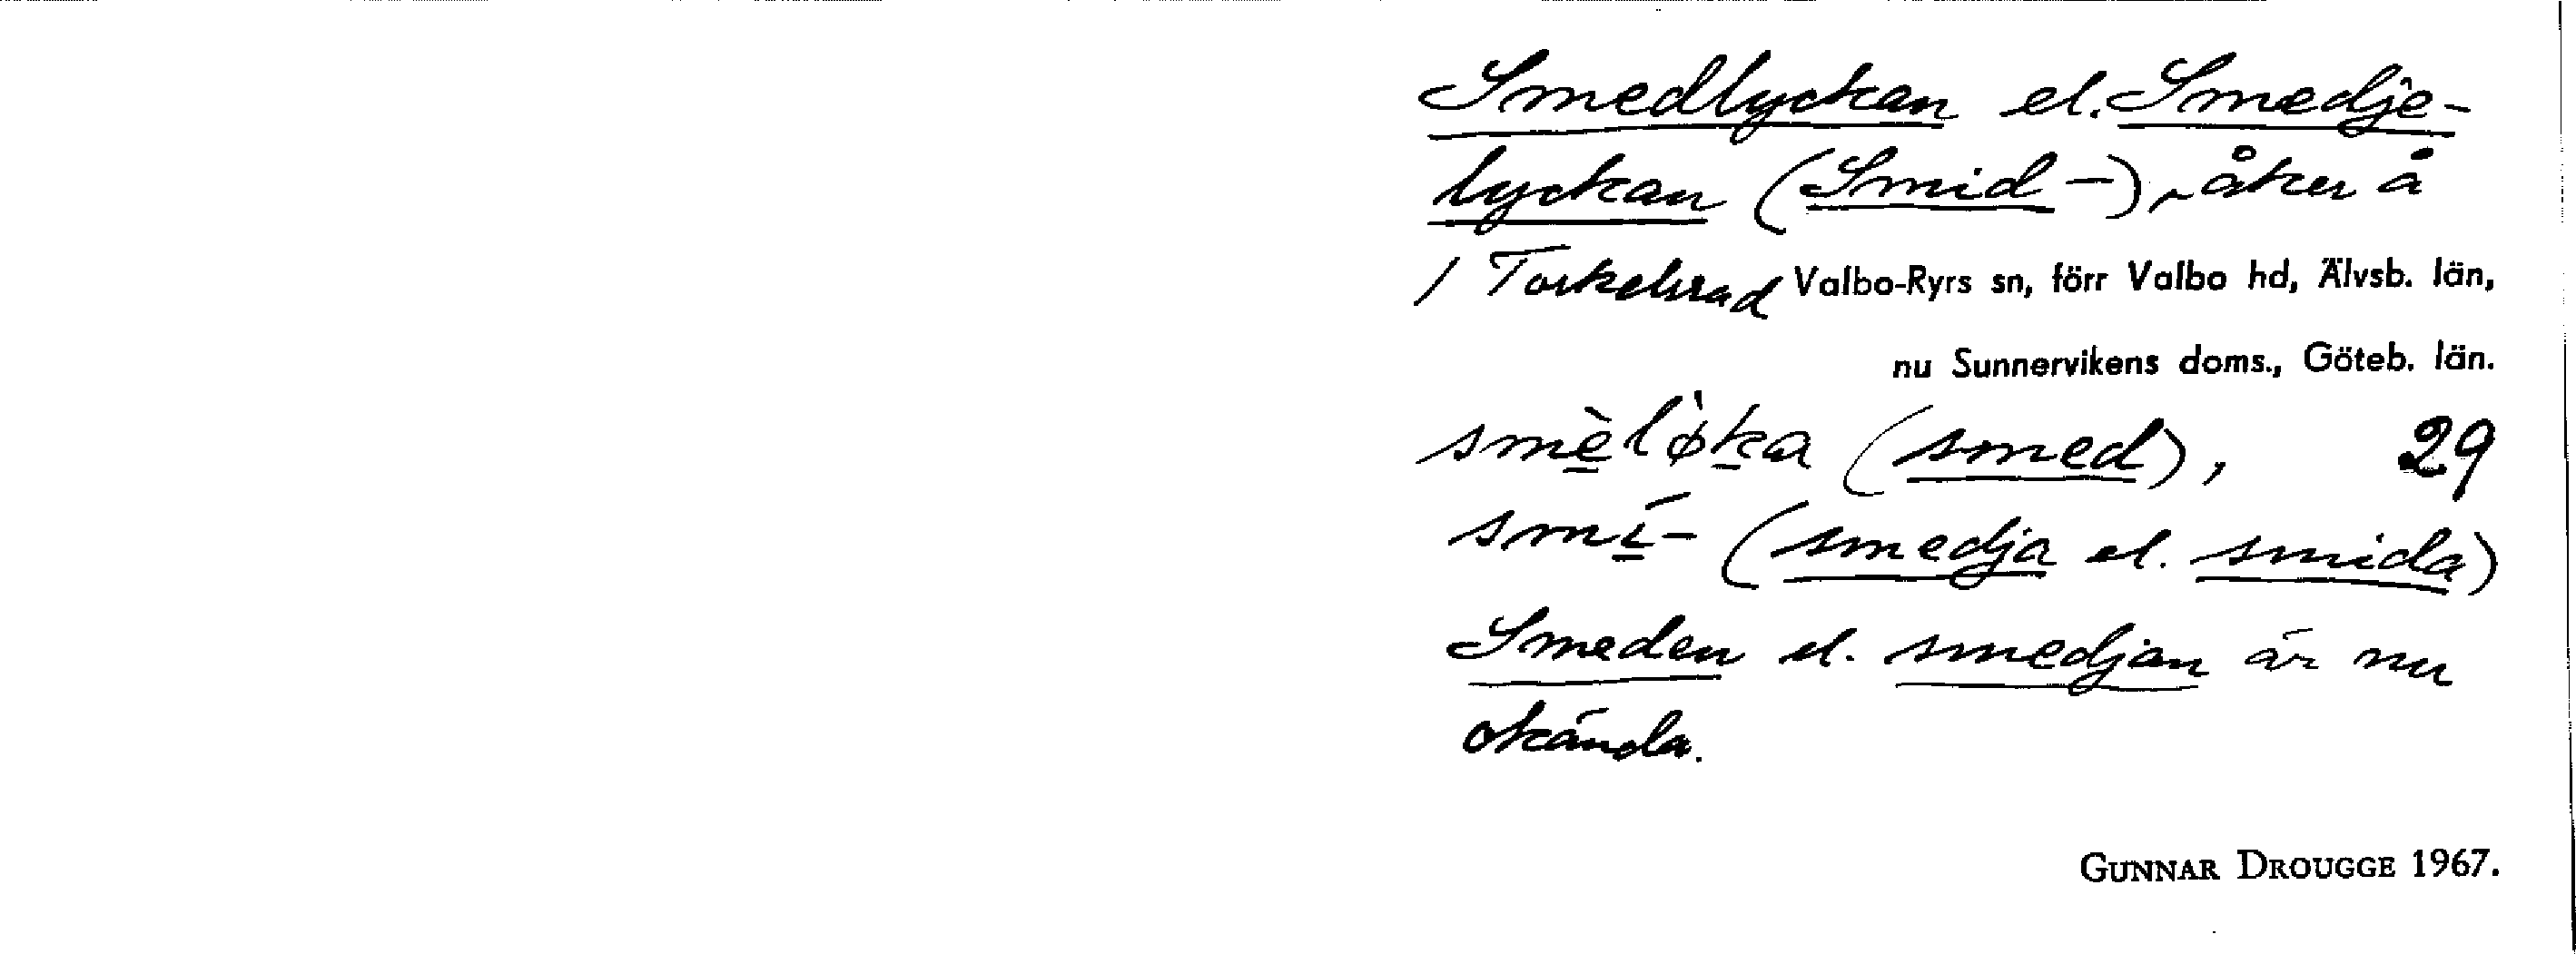 Smedlyckan el. Smedje-
lyckan (Smid-), åker å
1 Torkelsrud Valbo-Ryrs sn, förr Valbo hd, Älvsb. län,
nu Sunnervikens doms., Göteb. län.
smèlø̀ka (smed), 29
smí- (smedja el. smida)
Smeden el. smedjan är nu
okända.
GUNNAR DROUGGE 1967.